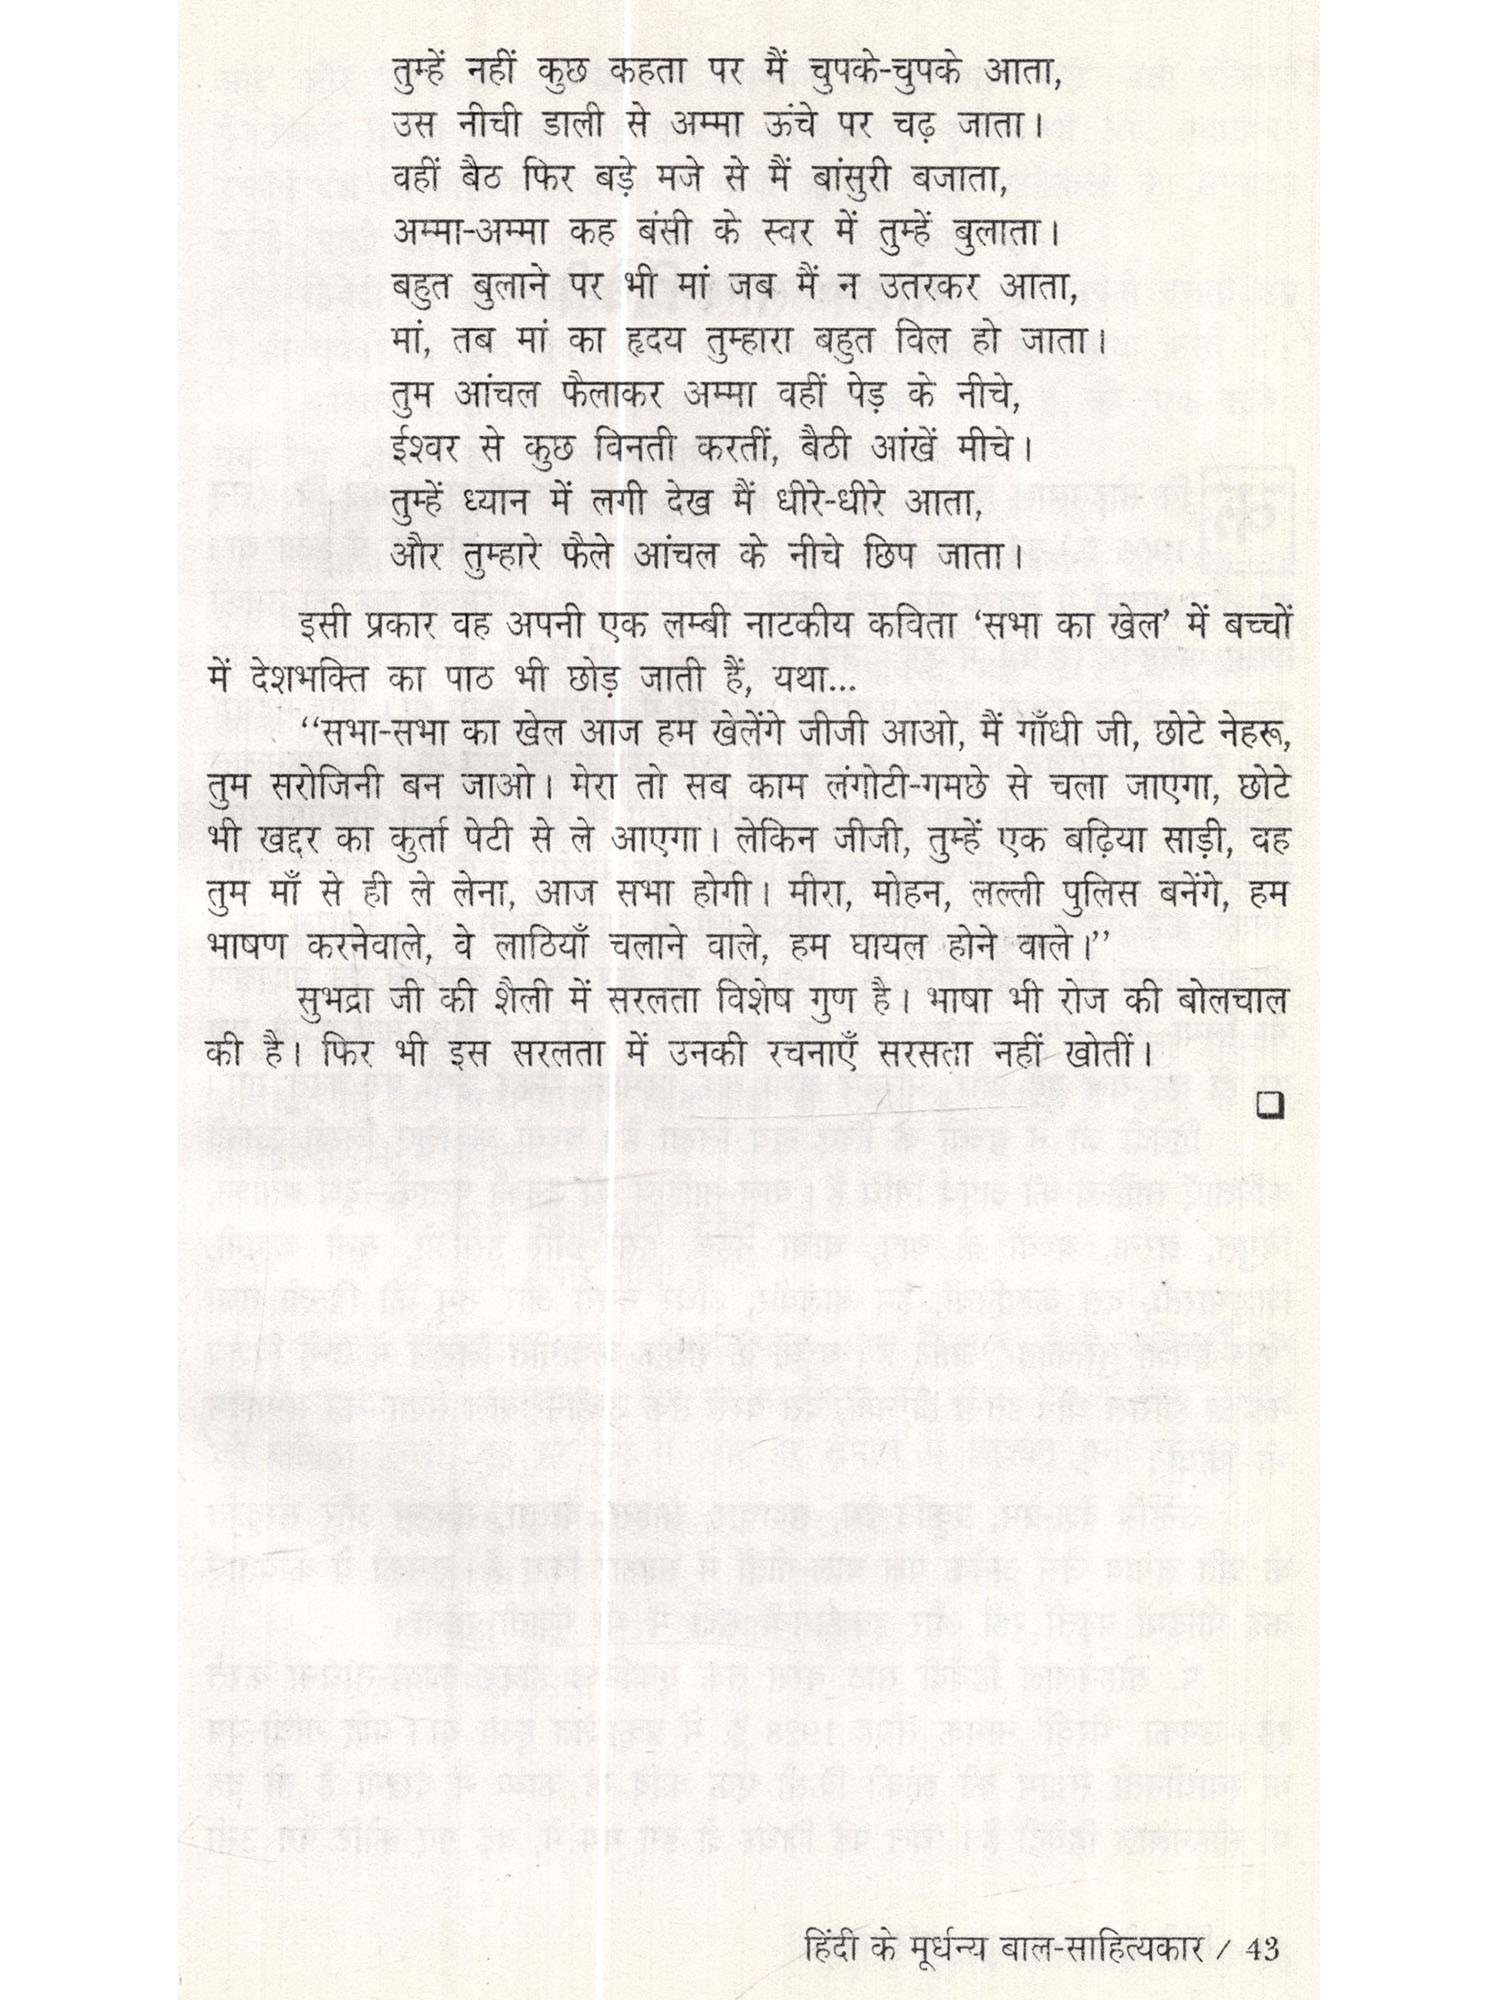 तुम्हें नहीं कुछ कहता पर मैं चुपके-चुपके आता,
उस नीची डाली से अम्मा ऊंचे पर चढ़ जाता।
वहीं बैठ फिर बड़े मजे से मैं बांसुरी बजाता,
अम्मा-अम्मा कह बंसी के स्वर में तुम्हें बुलाता।
बहुत बुलाने पर भी मां जब मैं न उतरकर आता,
मां, तब मां का हृदय तुम्हारा बहुत विल हो जाता।
तुम आंचल फैलाकर अम्मा वहीं पेड़ के नीचे,
ईश्वर से कुछ विनती करतीं, बैठी आंखें मीचे।
तुम्हें ध्यान में लगी देख मैं धीरे-धीरे आता,
और तुम्हारे फैले आंचल के नीचे छिप जाता।
इसी प्रकार वह अपनी एक लम्बी नाटकीय कविता ‘सभा का खेल’ में बच्चों
में देशभक्ति का पाठ भी छोड़ जाती हैं, यथा...
‘‘सभा-सभा का खेल आज हम खेलेंगे जीजी आओ, मैं गाँधी जी, छोटे नेहरू,
तुम सरोजिनी बन जाओ। मेरा तो सब काम लंगोटी-गमछे से चला जाएगा, छोटे
भी खद्दर का कुर्ता पेटी से ले आएगा। लेकिन जीजी, तुम्हें एक बढ़िया साड़ी, वह
तुम माँ से ही ले लेना, आज सभा होगी। मीरा, मोहन, लल्ली पुलिस बनेंगे, हम
भाषण करनेवाले, वे लाठियाँ चलाने वाले, हम घायल होने वाले।’’
सुभद्रा जी की शैली में सरलता विशेष गुण है। भाषा भी रोज की बोलचाल
की है। फिर भी इस सरलता में उनकी रचनाएँ सरसता नहीं खोतीं।
हिंदी के मूर्धन्य बाल-साहित्यकार / 43